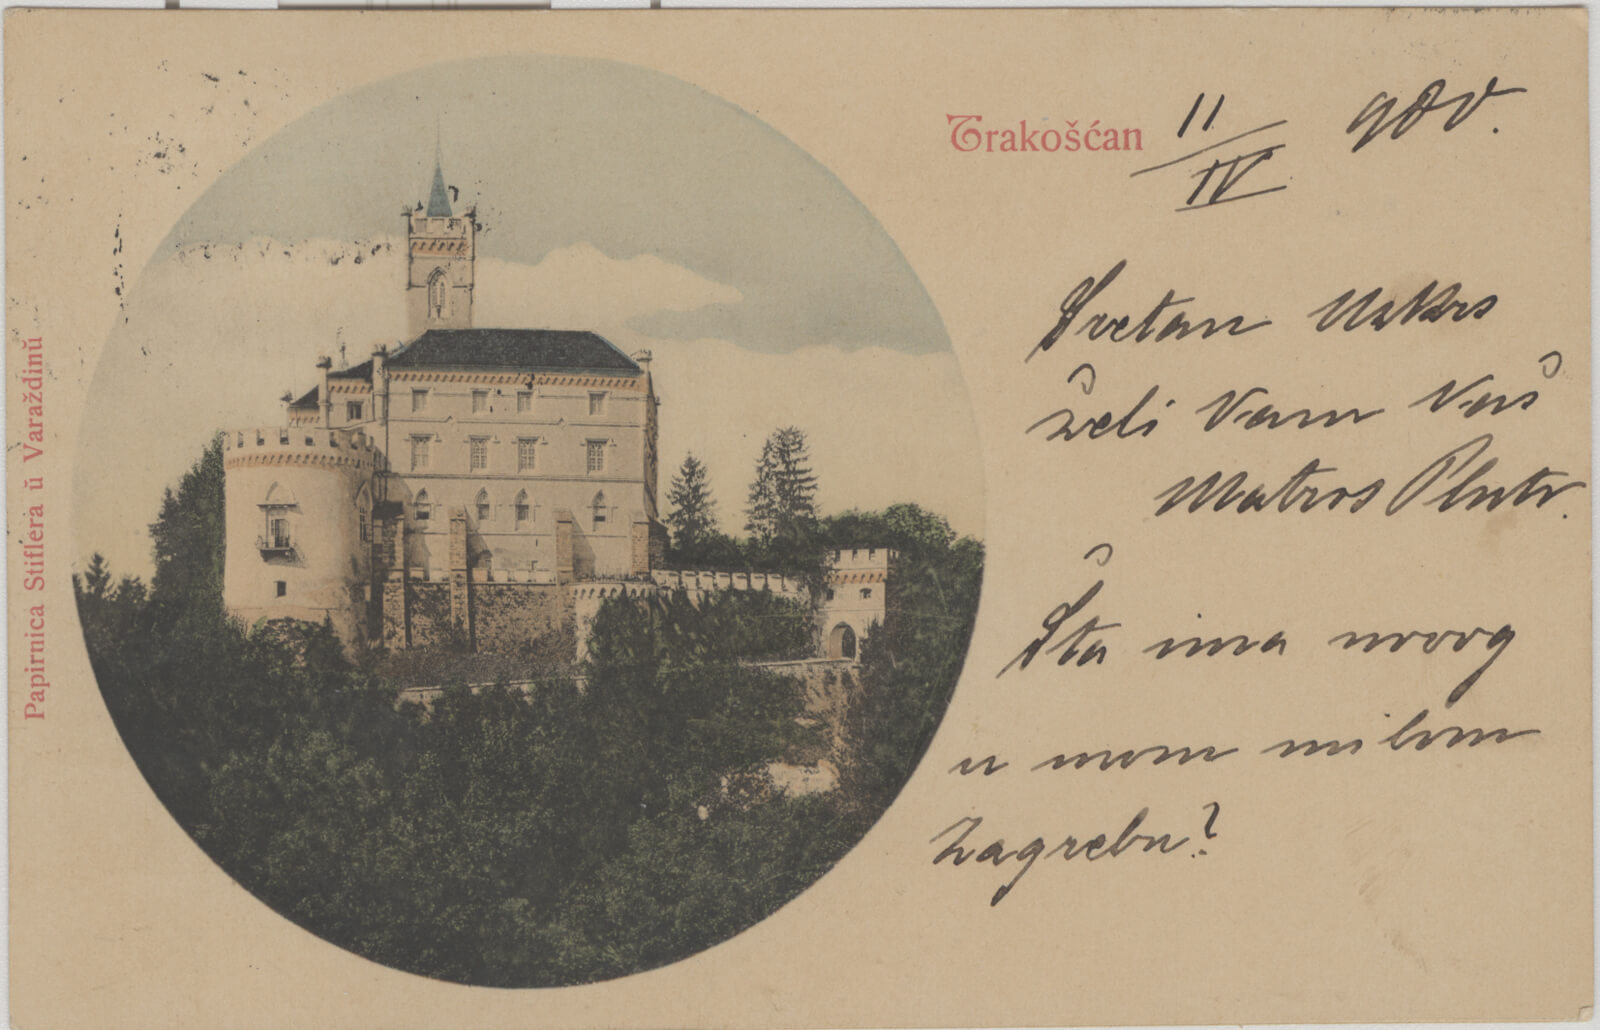 Trakošćan 11/IV 900.
Sretan Uskrs
želi Vam Vaš
Matros Pluto.
Šta ima novog
u mom milom
Zagrebu?
Papirnica Stiflera ŭ Varaždinŭ